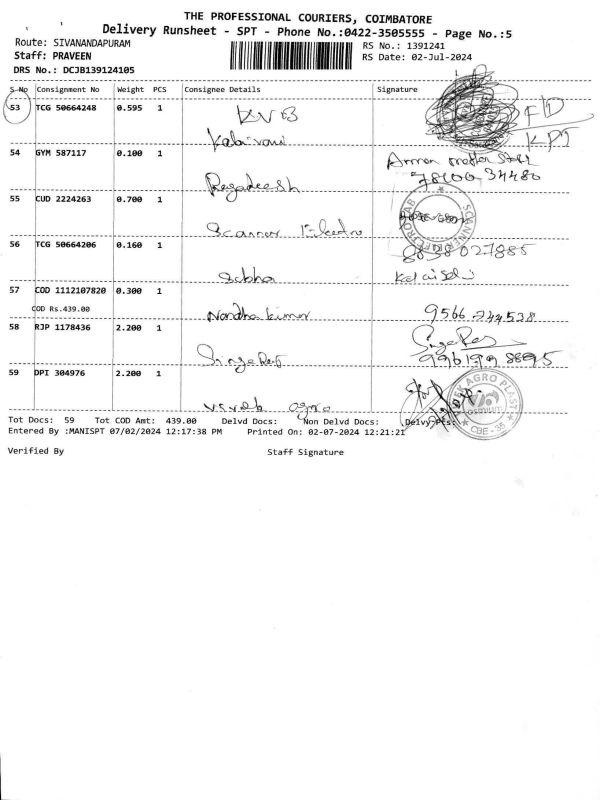 THE PROFESSIONAL COURIERS, COIMBATORE
Delivery Runsheet - SPT - Phone No.:0422-3505555 - Page No.:5
Route: SIVANANDAPURAM
RS No.: 1391241
Staff: PRAVEEN
RS Date: 02-Jul-2024
DRS No.: DCJB139124105
S.No Consignment No Weight PCS Consignee Details Signature
53 TCG 50664248 0.595 1 KVB FD
Kalaivani KPJ
54 GYM 587117 0.100 1
78100 34480
55 CUD 2224263 0.700 1
Scanner
56 TCG 50664206 0.160 1 8838027885
Sobha Kalaiselvi
57 COD 1112107820 0.300 1
COD Rs.439.00 Nandha kumar 9566 744538
58 RJP 1178436 2.200 1
59 DPI 304976 2.200 1
Vivek agro
AGRO PLAST
CBE - 35
Tot Docs: 59 Tot COD Amt: 439.00 Delvd Docs: Non Delvd Docs: Delvy Pcs:
Entered By :MANISPT 07/02/2024 12:17:38 PM Printed On: 02-07-2024 12:21:21
Verified By Staff Signature